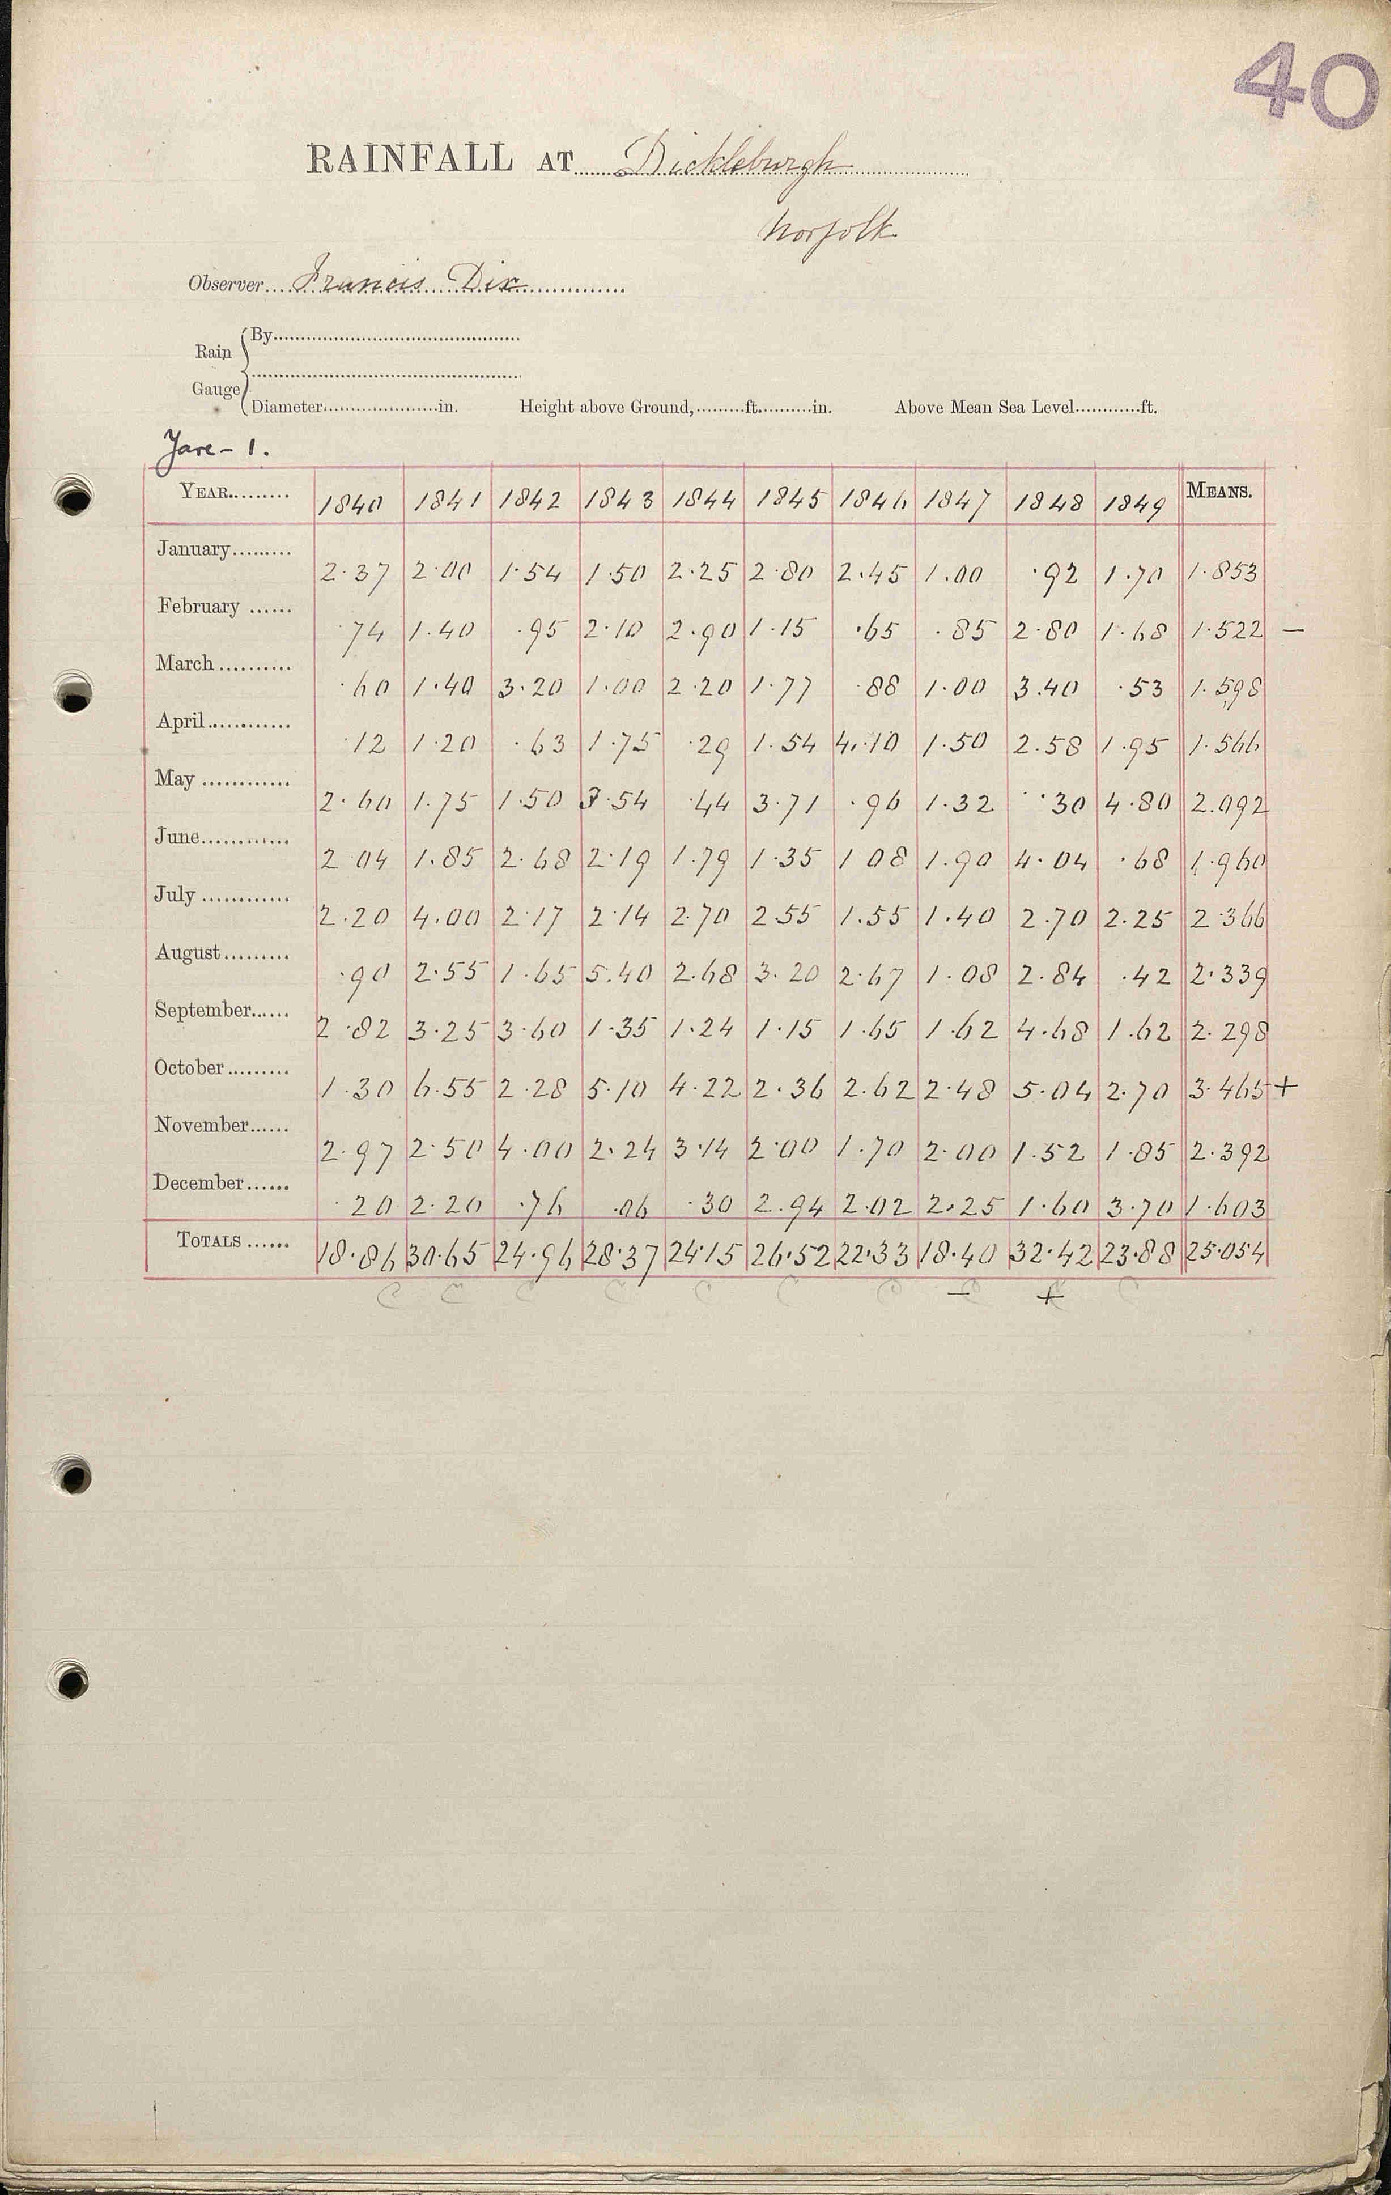 40
RAINFALL AT Dickleburgh
Norfolk
Observer Francis Dix
Rain Gauge
By
Diameter in. Height above Ground, ft. in. Above Mean Sea Level ft.
Yare - 1.
YEAR 1840 1841 1842 1843 1844 1845 1846 1847 1848 1849 MEANS.
January 2.37 2.00 1.54 1.50 2.25 2.80 2.45 1.00 .92 1.70 1.853
February .74 1.40 .95 2.10 2.90 1.15 .65 .85 2.80 1.68 1.522 —
March .60 1.40 3.20 1.00 2.20 1.77 .88 1.00 3.40 .53 1.598
April .12 1.20 .63 1.75 .29 1.54 4.10 1.50 2.58 1.95 1.566
May 2.60 1.75 1.50 3.54 .44 3.71 .96 1.32 .30 4.80 2.092
June 2.04 1.85 2.68 2.19 1.79 1.35 1.08 1.90 4.04 .68 1.960
July 2.20 4.00 2.17 2.14 2.70 2.55 1.55 1.40 2.70 2.25 2.366
August .90 2.55 1.65 5.40 2.68 3.20 2.67 1.08 2.84 .42 2.339
September 2.82 3.25 3.60 1.35 1.24 1.15 1.65 1.62 4.68 1.62 2.298
October 1.30 6.55 2.28 5.10 4.22 2.36 2.62 2.48 5.04 2.70 3.465 +
November 2.97 2.50 4.00 2.24 3.14 2.00 1.70 2.00 1.52 1.85 2.392
December .20 2.20 .76 .06 .30 2.94 2.02 2.25 1.60 3.70 1.603
TOTALS 18.86 30.65 24.96 28.37 24.15 26.52 22.33 18.40 32.42 23.88 25.054
C C C C C C C C — C + C